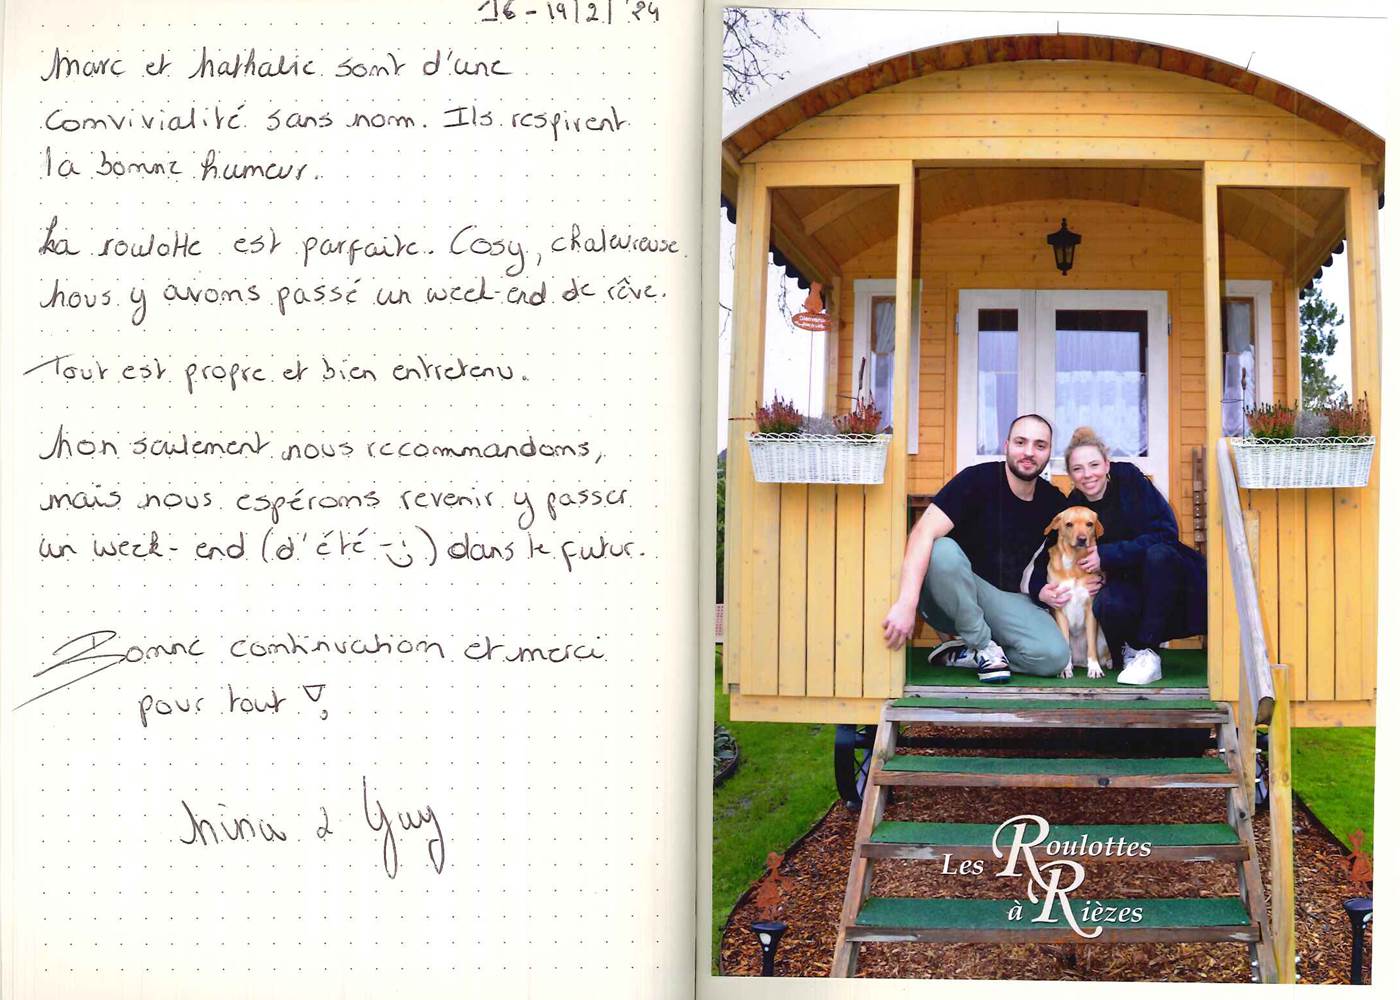 16-19/2/'24
Marc et Nathalie sont d'une
convivialité sans nom. Ils respirent
la bonne humeur.
La roulotte est parfaite. Cosy, chaleureuse.
Nous y avons passé un week-end de rêve.
Tout est propre et bien entretenu.
Non seulement nous recommandons,
mais nous espérons revenir y passer
un week-end (d'été :-)) dans le futur.
Bonne continuation et merci
pour tout !
Nina & Guy
Les Roulottes
à Rièzes